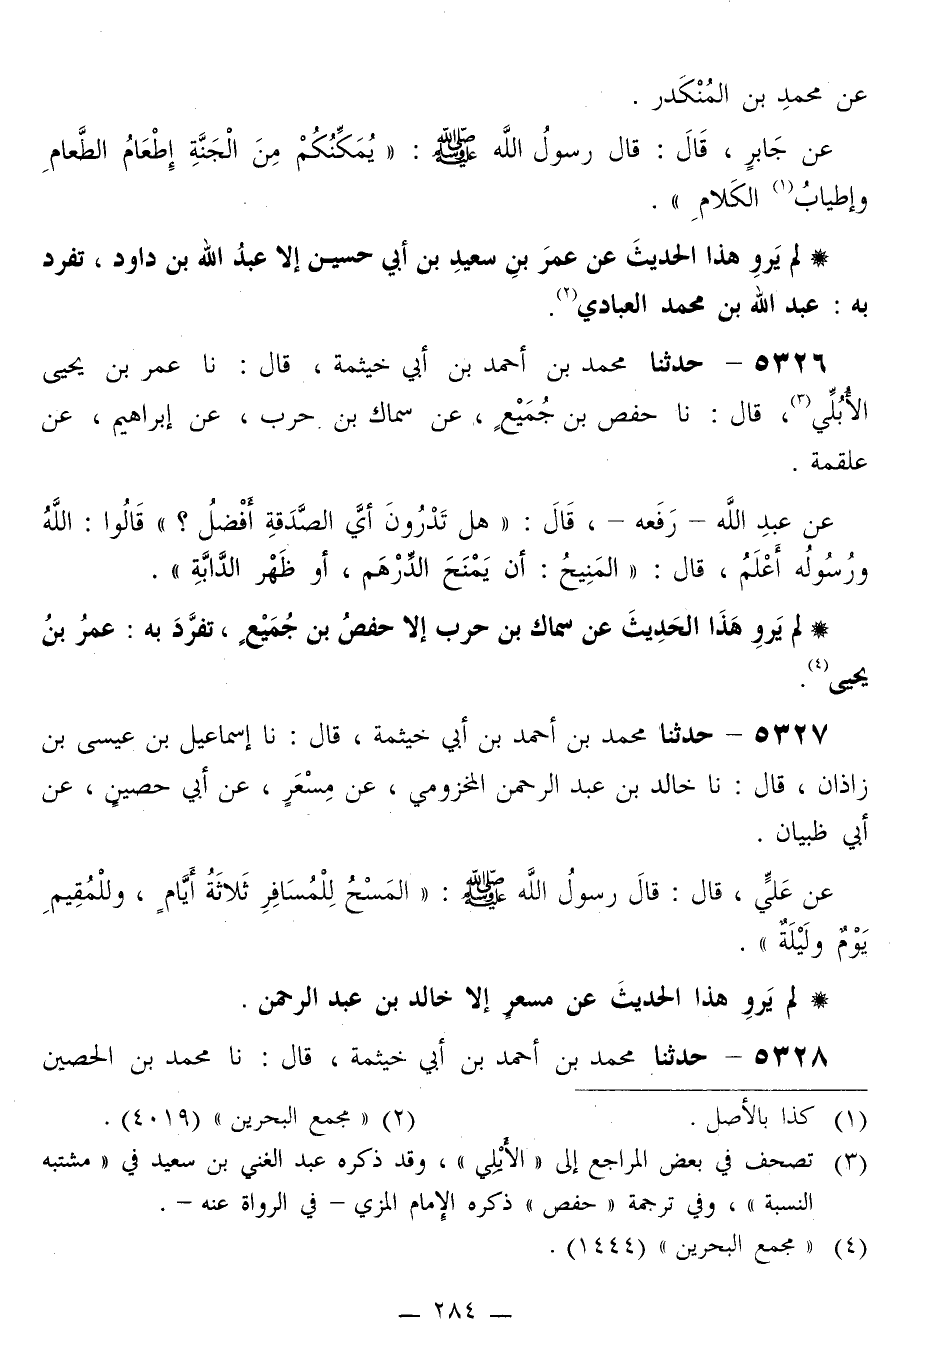 عن محمدِ بن المُنْكَدر .
عن جَابرٍ ، قَالَ : قال رسولُ اللَّه ﷺ : « يُمَكِّنُكُمْ مِنَ الْجَنَّةِ إِطْعَامُ الطَّعامِ
وإطيابُ(١) الكَلامِ » .
* لم يَروِ هذا الحديثَ عن عمرَ بنِ سعيدِ بن أبي حسين إلا عبدُ الله بن داود ، تفرد
به : عبد الله بن محمد العبادي(٢).
٥٣٢٦ - حدثنا محمد بن أحمد بن أبي خيثمة ، قال : نا عمر بن يحيى
الأُبُلِّي(٣)، قال : نا حفص بن جُمَيْعٍ ، عن سماك بن حرب ، عن إبراهيم ، عن
علقمة .
عن عبدِ اللَّه - رَفَعه - ، قَالَ : « هل تَدْرُونَ أيَّ الصَّدَقةِ أَفْضلُ ؟ » قَالُوا : اللَّهُ
ورُسُولُه أَعْلَمُ ، قال : « المَنِيحُ : أن يَمْنَحَ الدِّرْهَم ، أو ظَهْر الدَّابَّةِ » .
* لم يَروِ هَذَا الحَدِيثَ عن سماك بن حرب إلا حفصُ بن جُمَيْعٍ ، تفرَّدَ به : عمرُ بنُ
يحيى(٤).
٥٣٢٧ - حدثنا محمد بن أحمد بن أبي خيثمة ، قال : نا إسماعيل بن عيسى بن
زاذان ، قال : نا خالد بن عبد الرحمن المخزومي ، عن مِسْعَرٍ ، عن أبي حصينٍ ، عن
أبي ظبيان .
عن عَليٍّ ، قال : قالَ رسولُ اللَّه ﷺ : « المَسْحُ لِلْمُسَافِرِ ثَلاثَةُ أَيَّامٍ ، وللْمُقِيمِ
يَوْمٌ ولَيْلَةٌ » .
* لم يَروِ هذا الحديثَ عن مسعرٍ إلا خالد بن عبد الرحمن .
٥٣٢٨ - حدثنا محمد بن أحمد بن أبي خيثمة ، قال : نا محمد بن الحصين
(١) كذا بالأصل . (٢) « مجمع البحرين » (٤٠١٩) .
(٣) تصحف في بعض المراجع إلى « الأَيْلِي » ، وقد ذكره عبد الغني بن سعيد في « مشتبه
النسبة » ، وفي ترجمة « حفص » ذكره الإمام المزي - في الرواة عنه - .
(٤) « مجمع البحرين » (١٤٤٤) .
— ٢٨٤ —